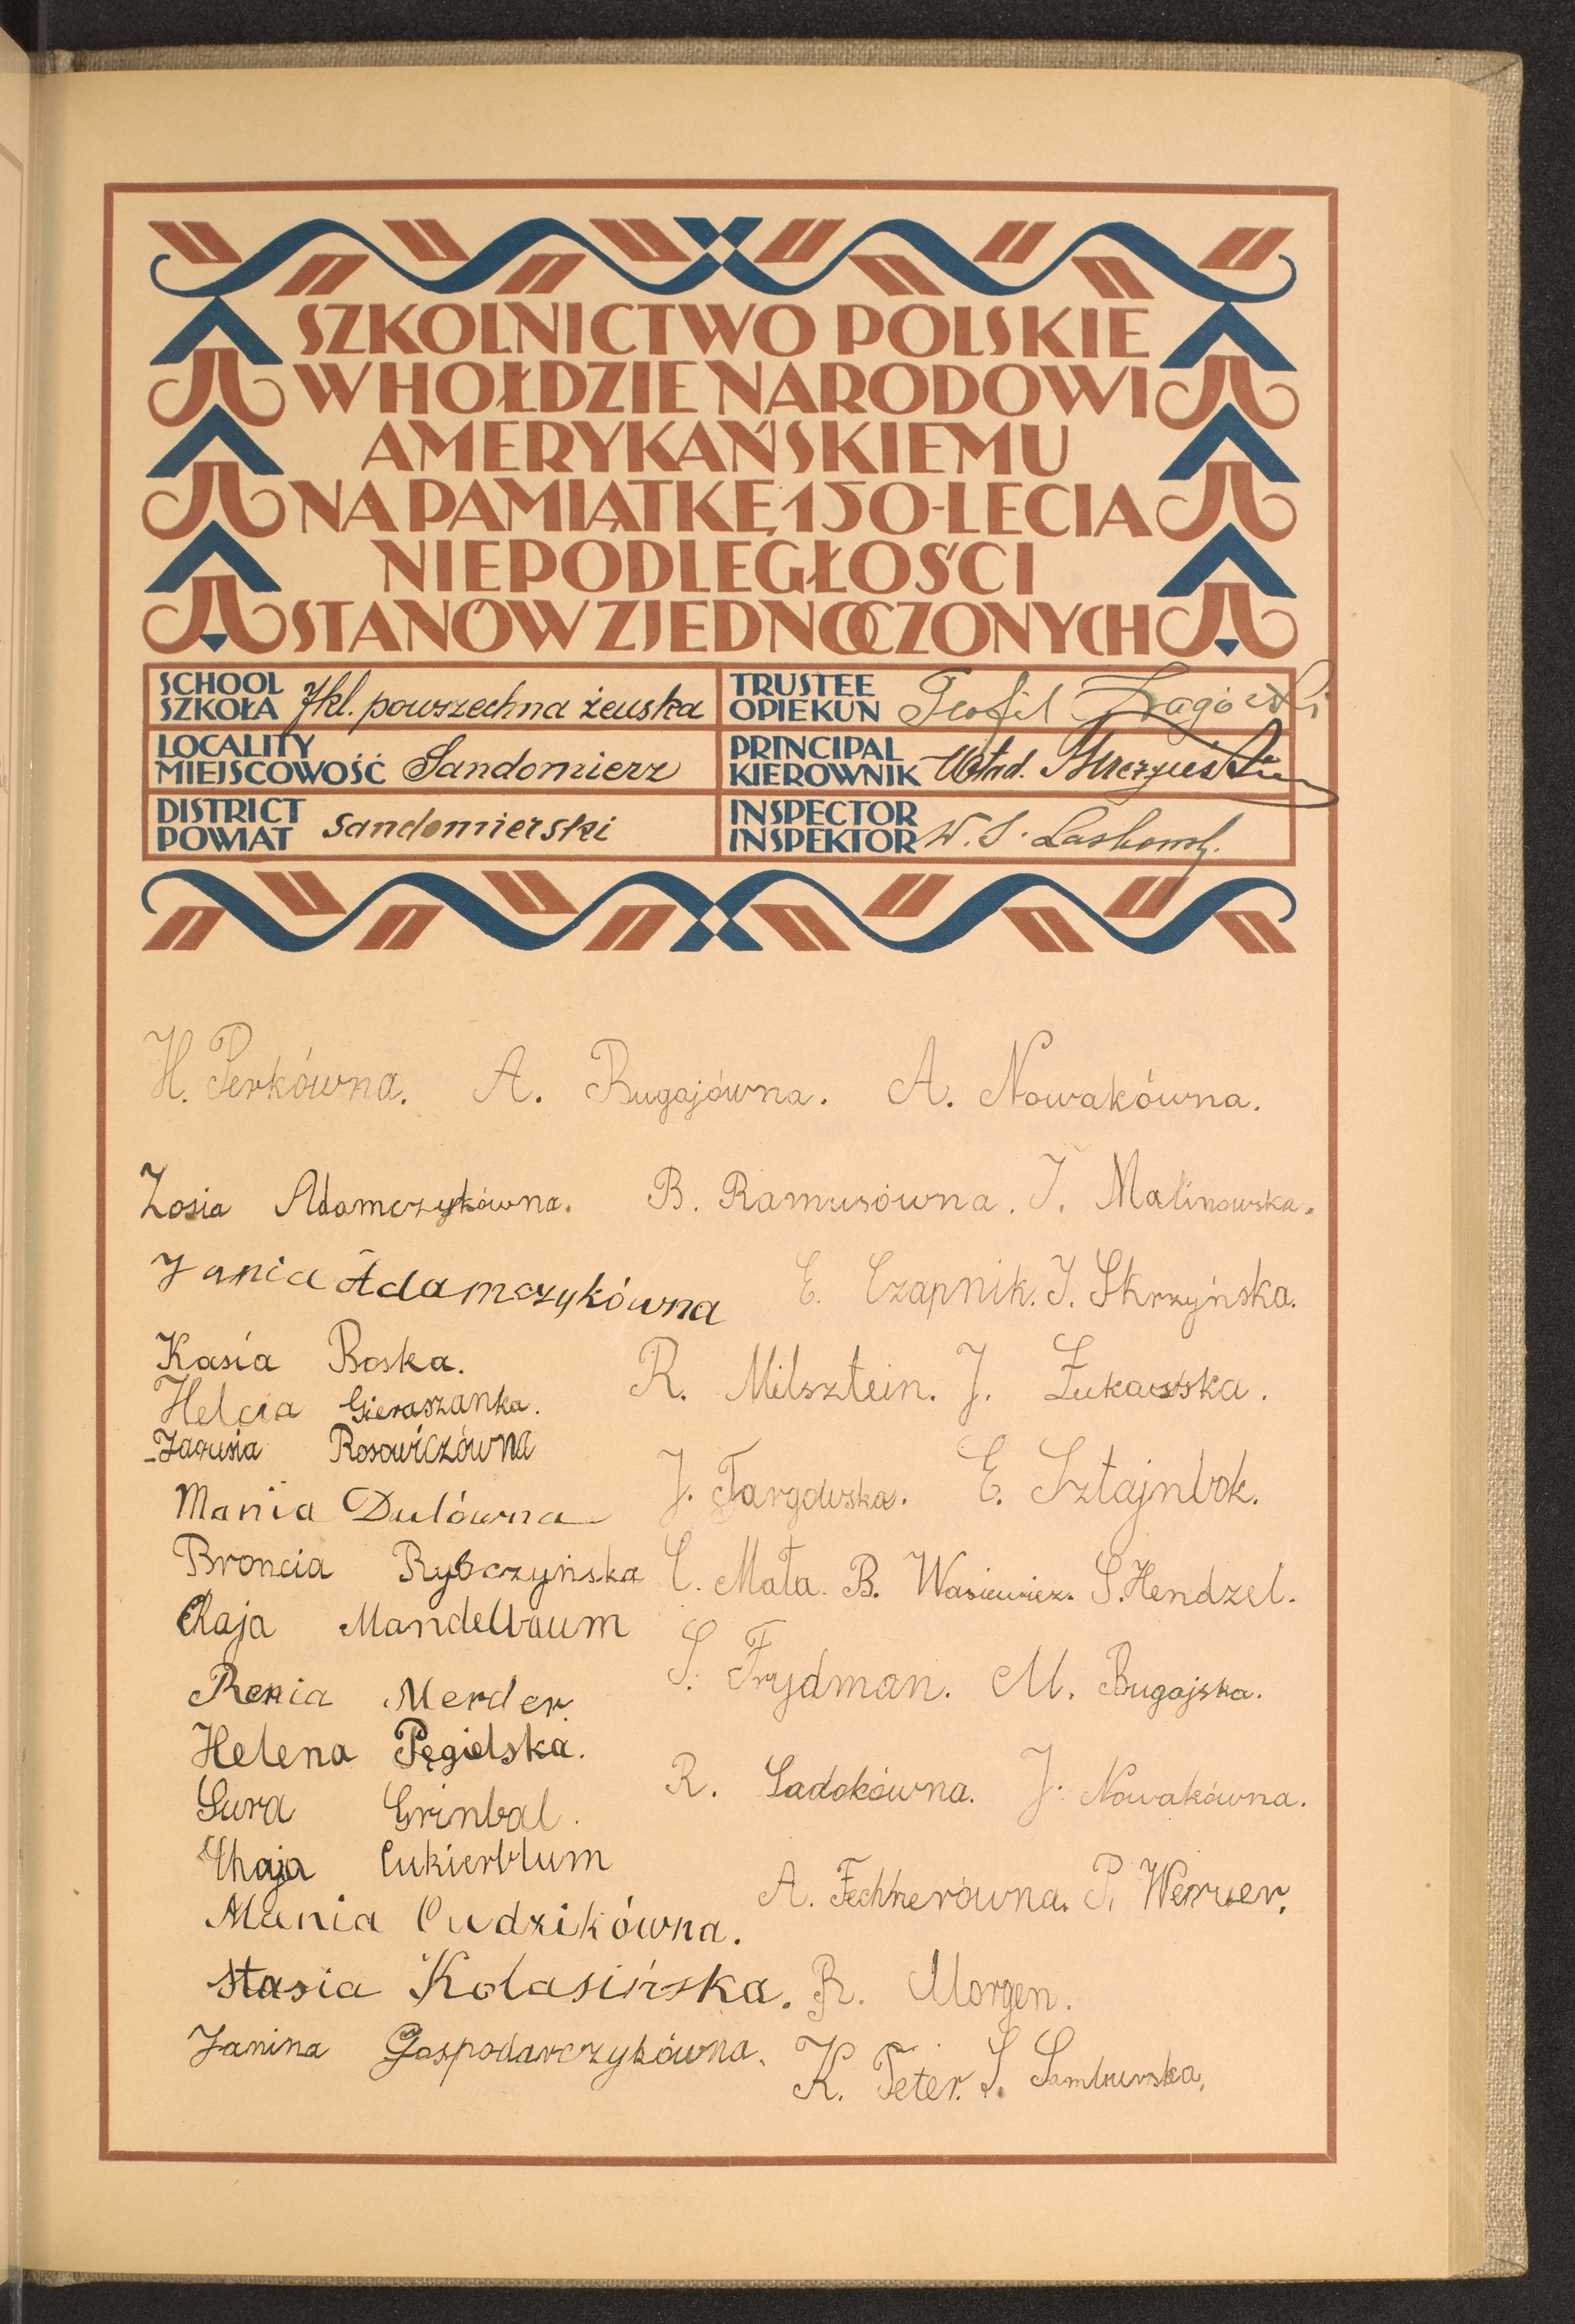 SZKOLNICTWO POLSKIE
W HOŁDZIE NARODOWI
AMERYKAŃSKIEMU
NA PAMIĄTKĘ 150-LECIA
NIEPODLEGŁOŚCI
STANÓW ZJEDNOCZONYCH
SCHOOL
SZKOŁA 7kl. powszechna żeńska
TRUSTEE
OPIEKUN Teofil
LOCALITY
MIEJSCOWOŚĆ Sandomierz
PRINCIPAL
KIEROWNIK Wład.
DISTRICT
POWIAT sandomierski
INSPECTOR
INSPEKTOR W. S. Laskowsk.
H. Perkówna. A. Bugajówna. A. Nowakówna.
Zosia Adamczykówna. B. Ramusówna. T. Malinowska.
Jania Adamczykówna E. Czapnik. J. Skrzyńska.
Kasia Boska. R. Milsztein. J. Żukawska.
Helcia Gieraszanka.
Jarusia Rosowiczówna
Mania Dulówna J. Targowska. E. Sztajnbok.
Broncia Rybczyńska C. Mała. B. Wasiewicz. S. Hendzel.
Chaja Mandelbaum
Renia Merder. S. Frydman. M. Bugajska.
Helena Pęgielska.
Sura Grinbal. R. Sadokówna. J. Nowakówna.
Chaja Cukierblum
Mania Cudzikówna. A. Fechnerówna. P. Werner.
Stasia Kolasińska. R. Morgen.
Janina Gospodarczykówna. K. Peter. S. Samburska.